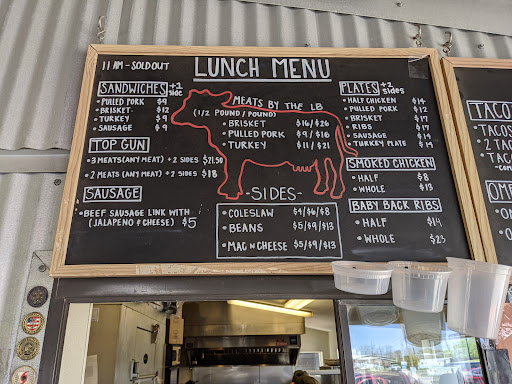 11 AM - SOLD OUT
LUNCH MENU
SANDWICHES +1 side
• PULLED PORK $9
• BRISKET $12
• TURKEY $9
• SAUSAGE $9
TOP GUN
• 3 MEATS (ANY MEAT) + 2 SIDES $21.50
• 2 MEATS (ANY MEAT) + 2 SIDES $18
SAUSAGE
• BEEF SAUSAGE LINK WITH (JALAPENO & CHEESE) $5
MEATS BY THE LB
(1/2 POUND / POUND)
• BRISKET $16/$26
• PULLED PORK $9/$16
• TURKEY $11/$21
- SIDES -
• COLESLAW $4/$6/$8
• BEANS $5/$9/$13
• MAC N CHEESE $5/$9/$13
PLATES +2 sides
• HALF CHICKEN $14
• PULLED PORK $12
• BRISKET $17
• RIBS $17
• SAUSAGE $14
• TURKEY PLATE $14
SMOKED CHICKEN
• HALF $8
• WHOLE $13
BABY BACK RIBS
• HALF $14
• WHOLE $23
TACO
TACOS
2 TA
TACO